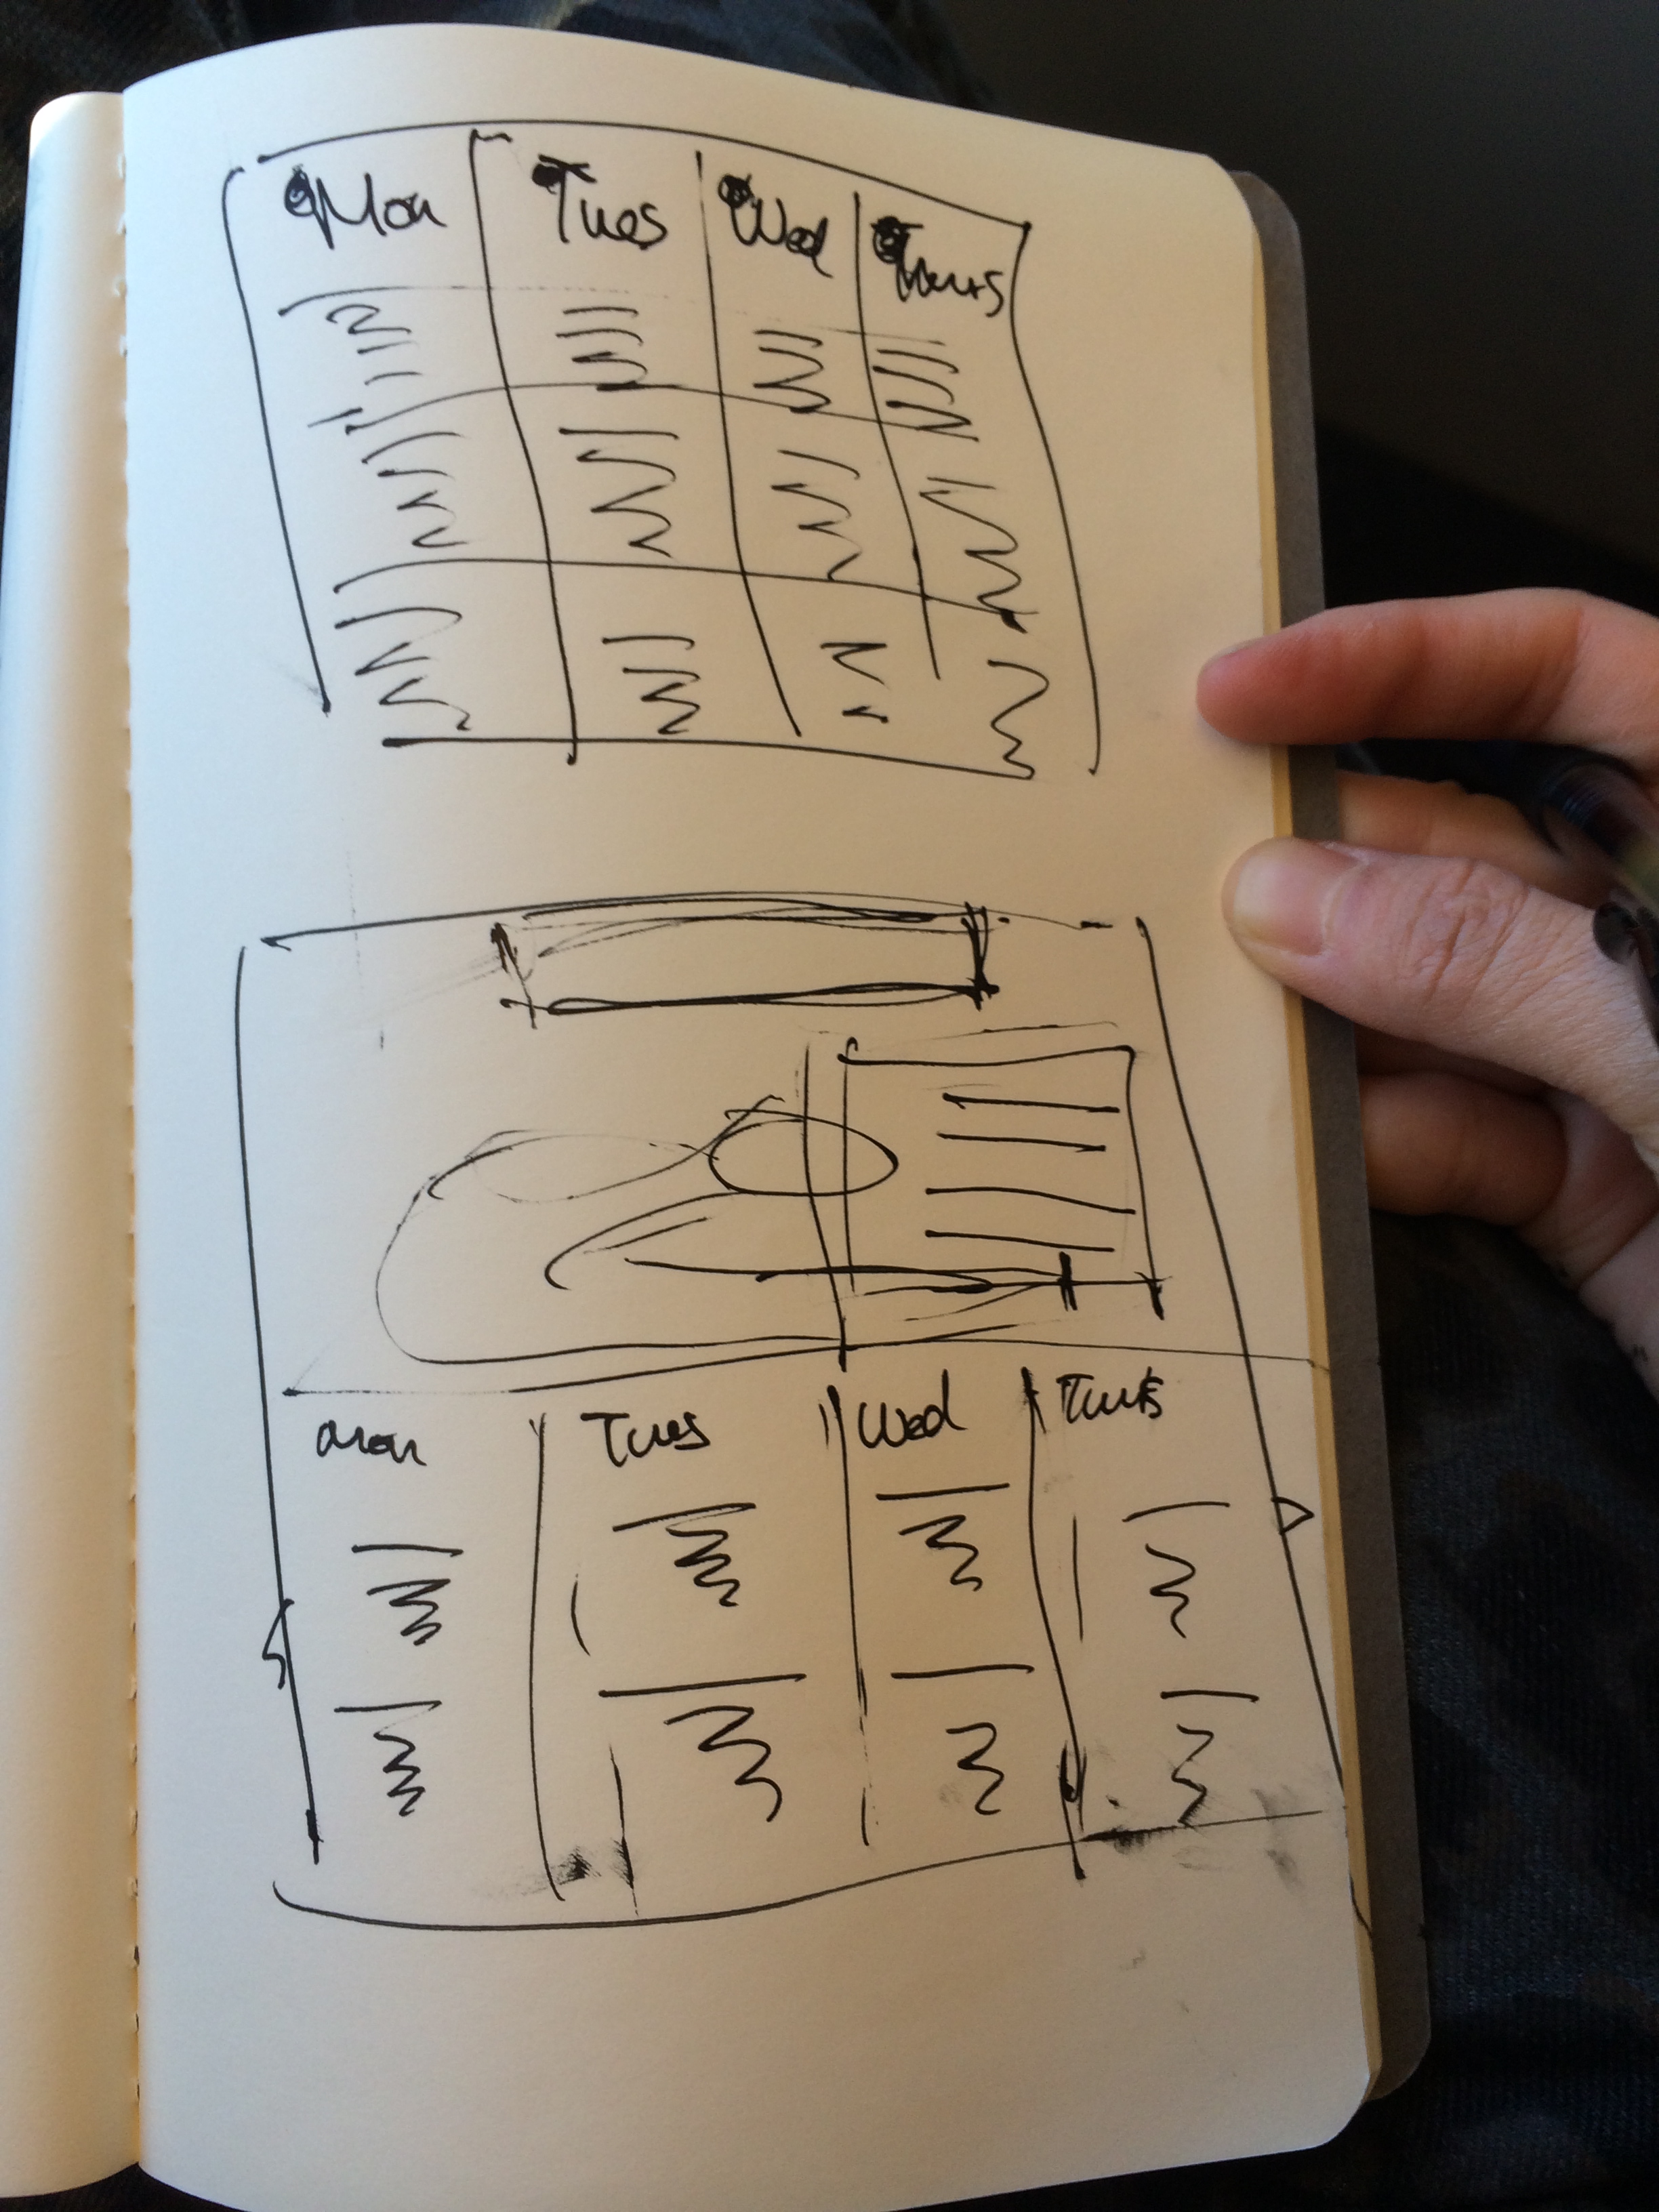 Mon Tues Wed Thurs
Mon Tues Wed Thurs